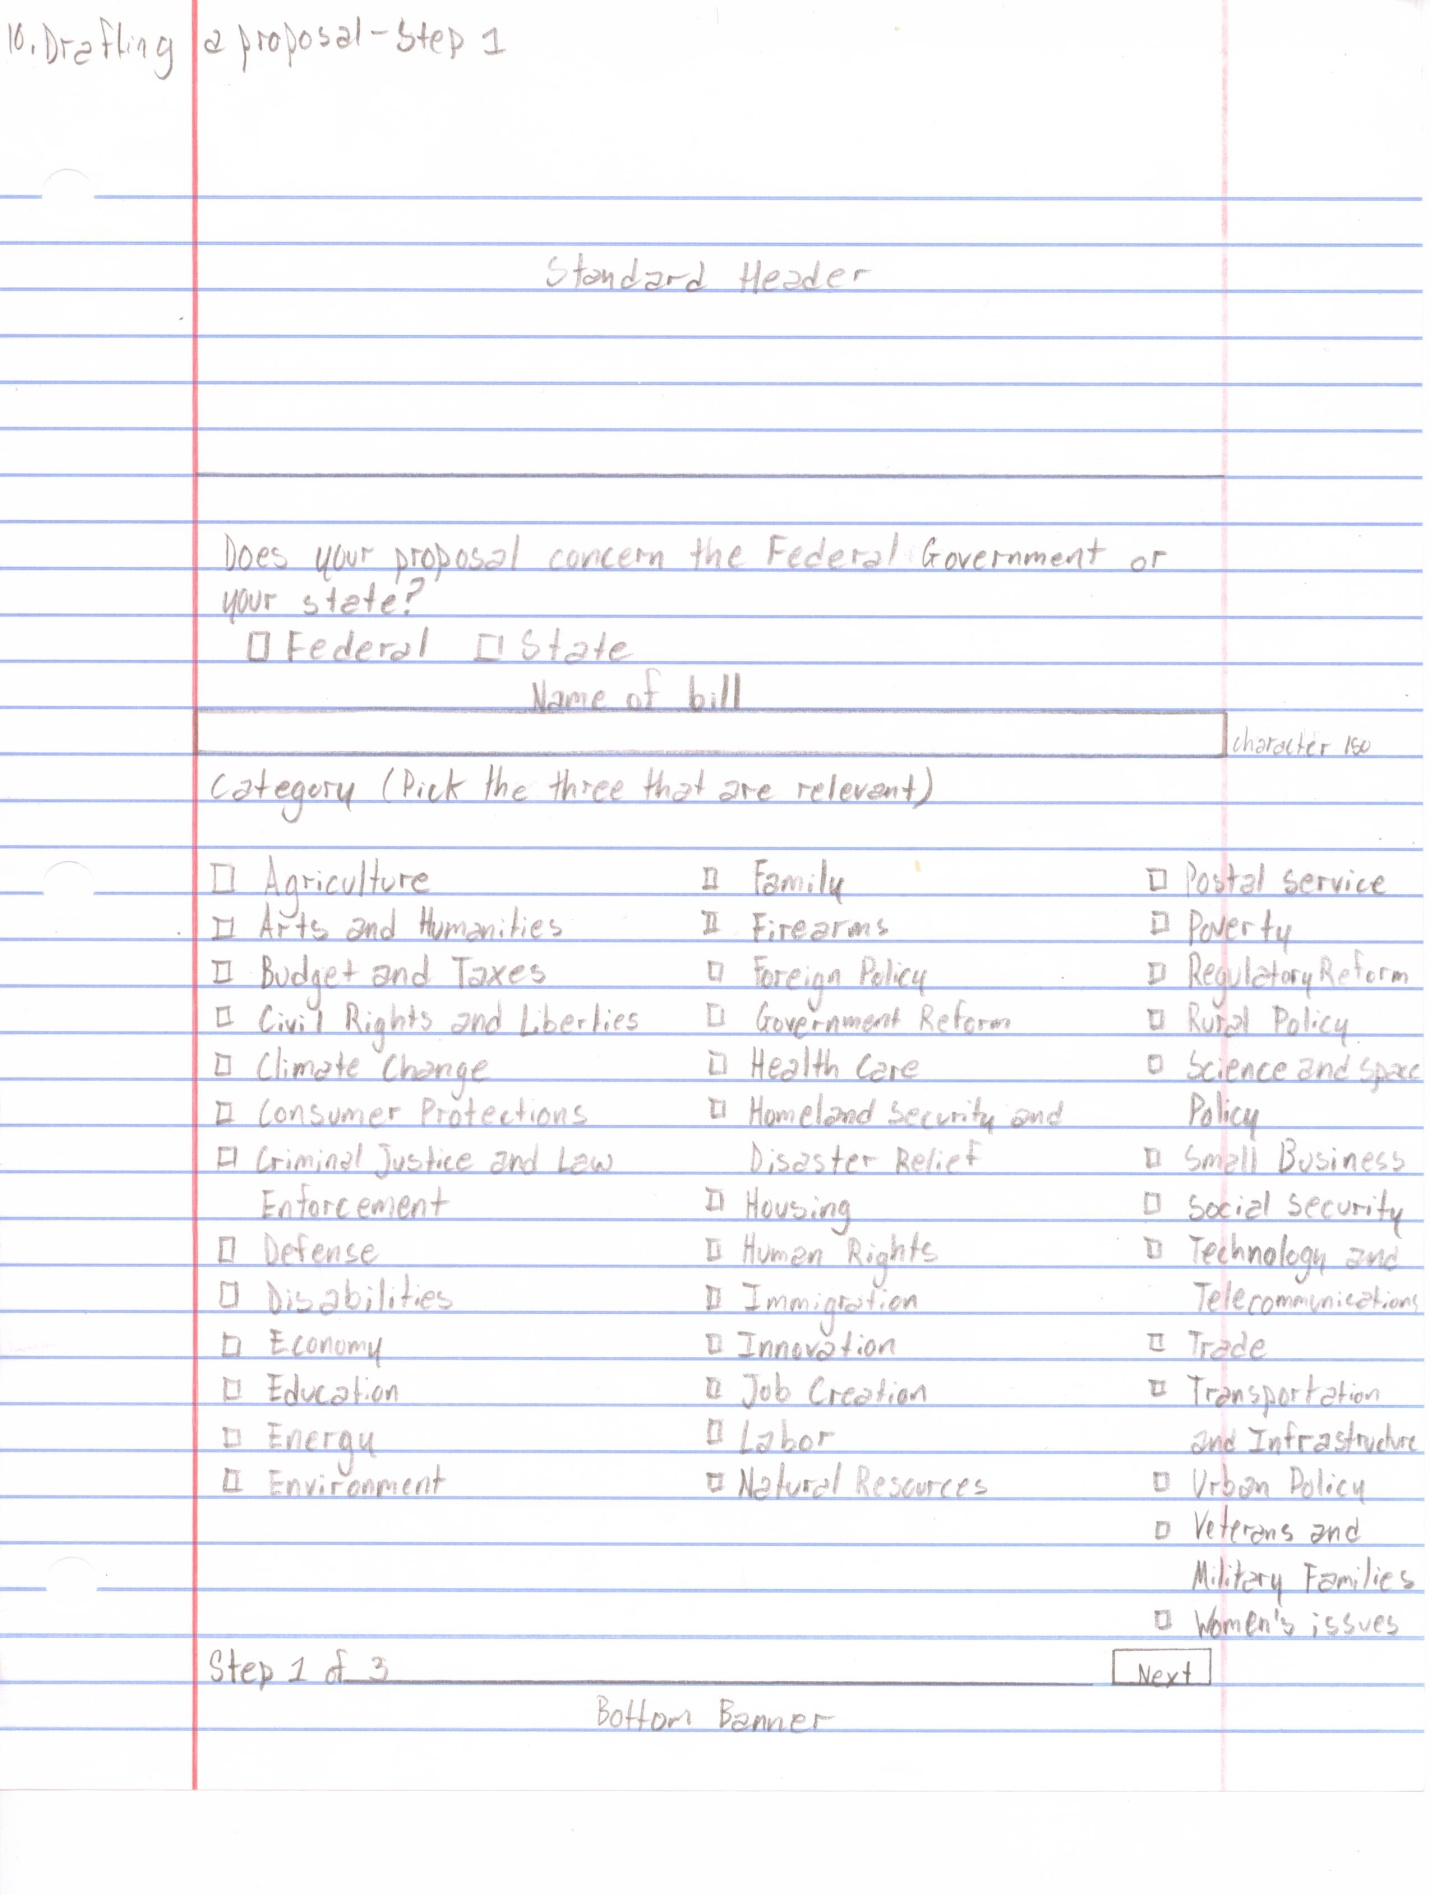 10. Drafting a proposal - Step 1
Standard Header
Does your proposal concern the Federal Government or
your state?
Federal State
Name of bill
character 150
Category (Pick the three that are relevant)
Agriculture
Arts and Humanities
Budget and Taxes
Civil Rights and Liberties
Climate Change
Consumer Protections
Criminal Justice and Law
Enforcement
Defense
Disabilities
Economy
Education
Energy
Environment
Family
Firearms
Foreign Policy
Government Reform
Health Care
Homeland Security and
Disaster Relief
Housing
Human Rights
Immigration
Innovation
Job Creation
Labor
Natural Resources
Postal service
Poverty
Regulatory Reform
Rural Policy
Science and Space
Policy
Small Business
Social Security
Technology and
Telecommunications
Trade
Transportation
and Infrastructure
Urban Policy
Veterans and
Military Families
Women's issues
Step 1 of 3
Next
Bottom Banner